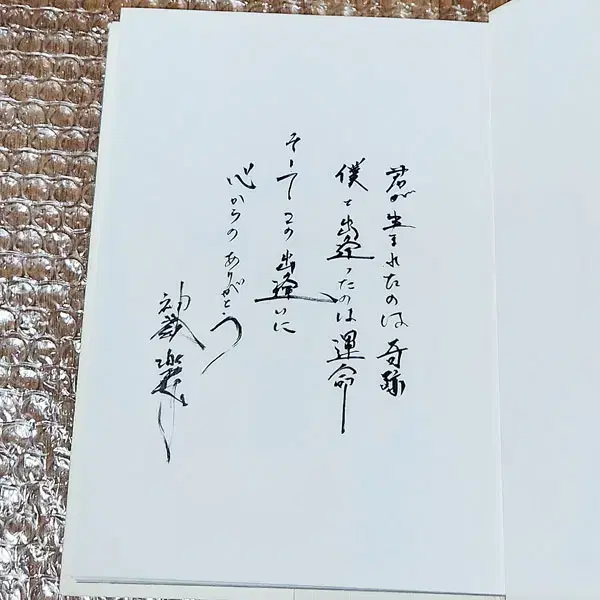 君が生まれたのは奇跡
僕と出逢ったのは運命
そしてこの出逢いに
心からのありがとう
神威楽斗